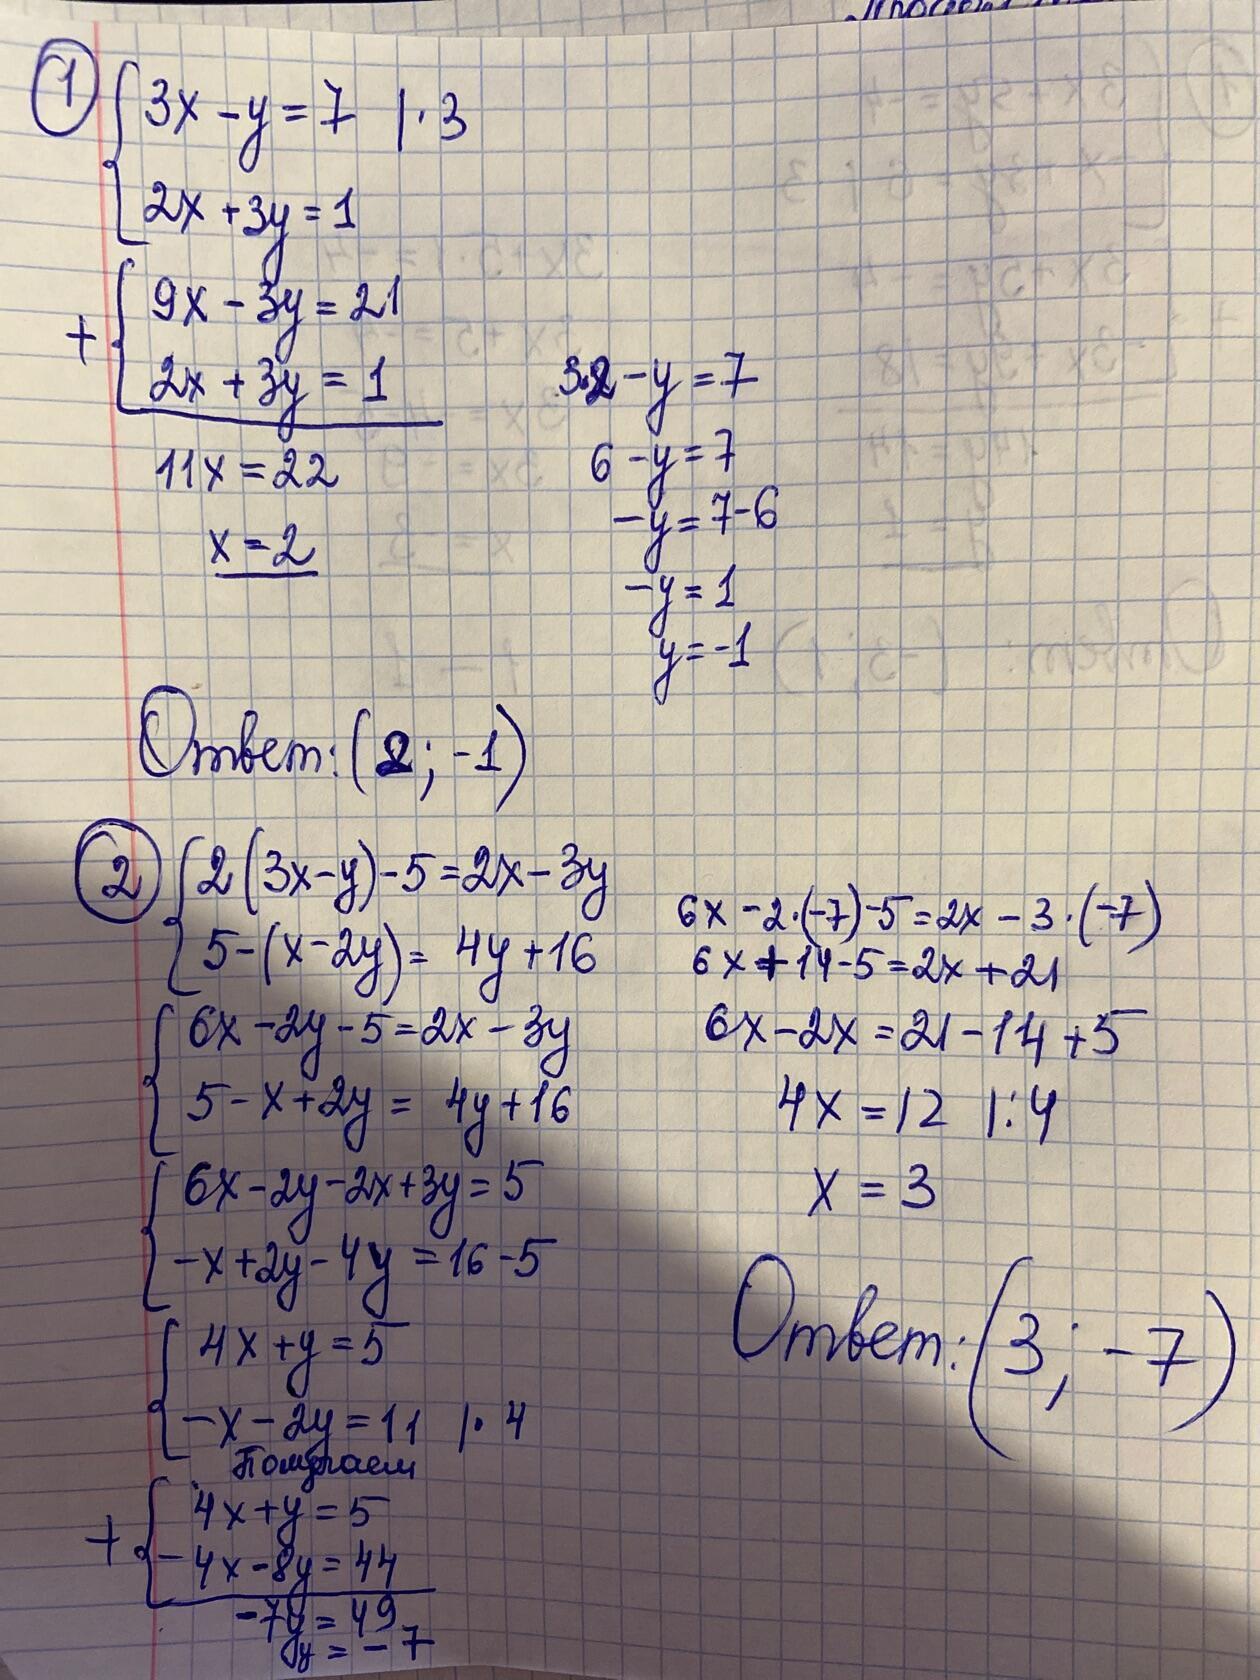 1
3x - y = 7 | · 3
2x + 3y = 1
9x - 3y = 21
+
2x + 3y = 1
11x = 22
x = 2
3·2 - y = 7
6 - y = 7
-y = 7-6
-y = 1
y = -1
Ответ: (2; -1)
2
2(3x-y)-5=2x-3y
5-(x-2y)= 4y+16
6x-2y-5=2x-3y
5-x+2y= 4y+16
6x-2y-2x+3y=5
-x+2y-4y=16-5
4x+y=5
-x-2y=11 | · 4
Получаем
4x+y=5
+
-4x-8y=44
-7y=49
y=-7
6x-2·(-7)-5=2x-3·(-7)
6x+14-5=2x+21
6x-2x=21-14+5
4x=12 |:4
x=3
Ответ: (3; -7)